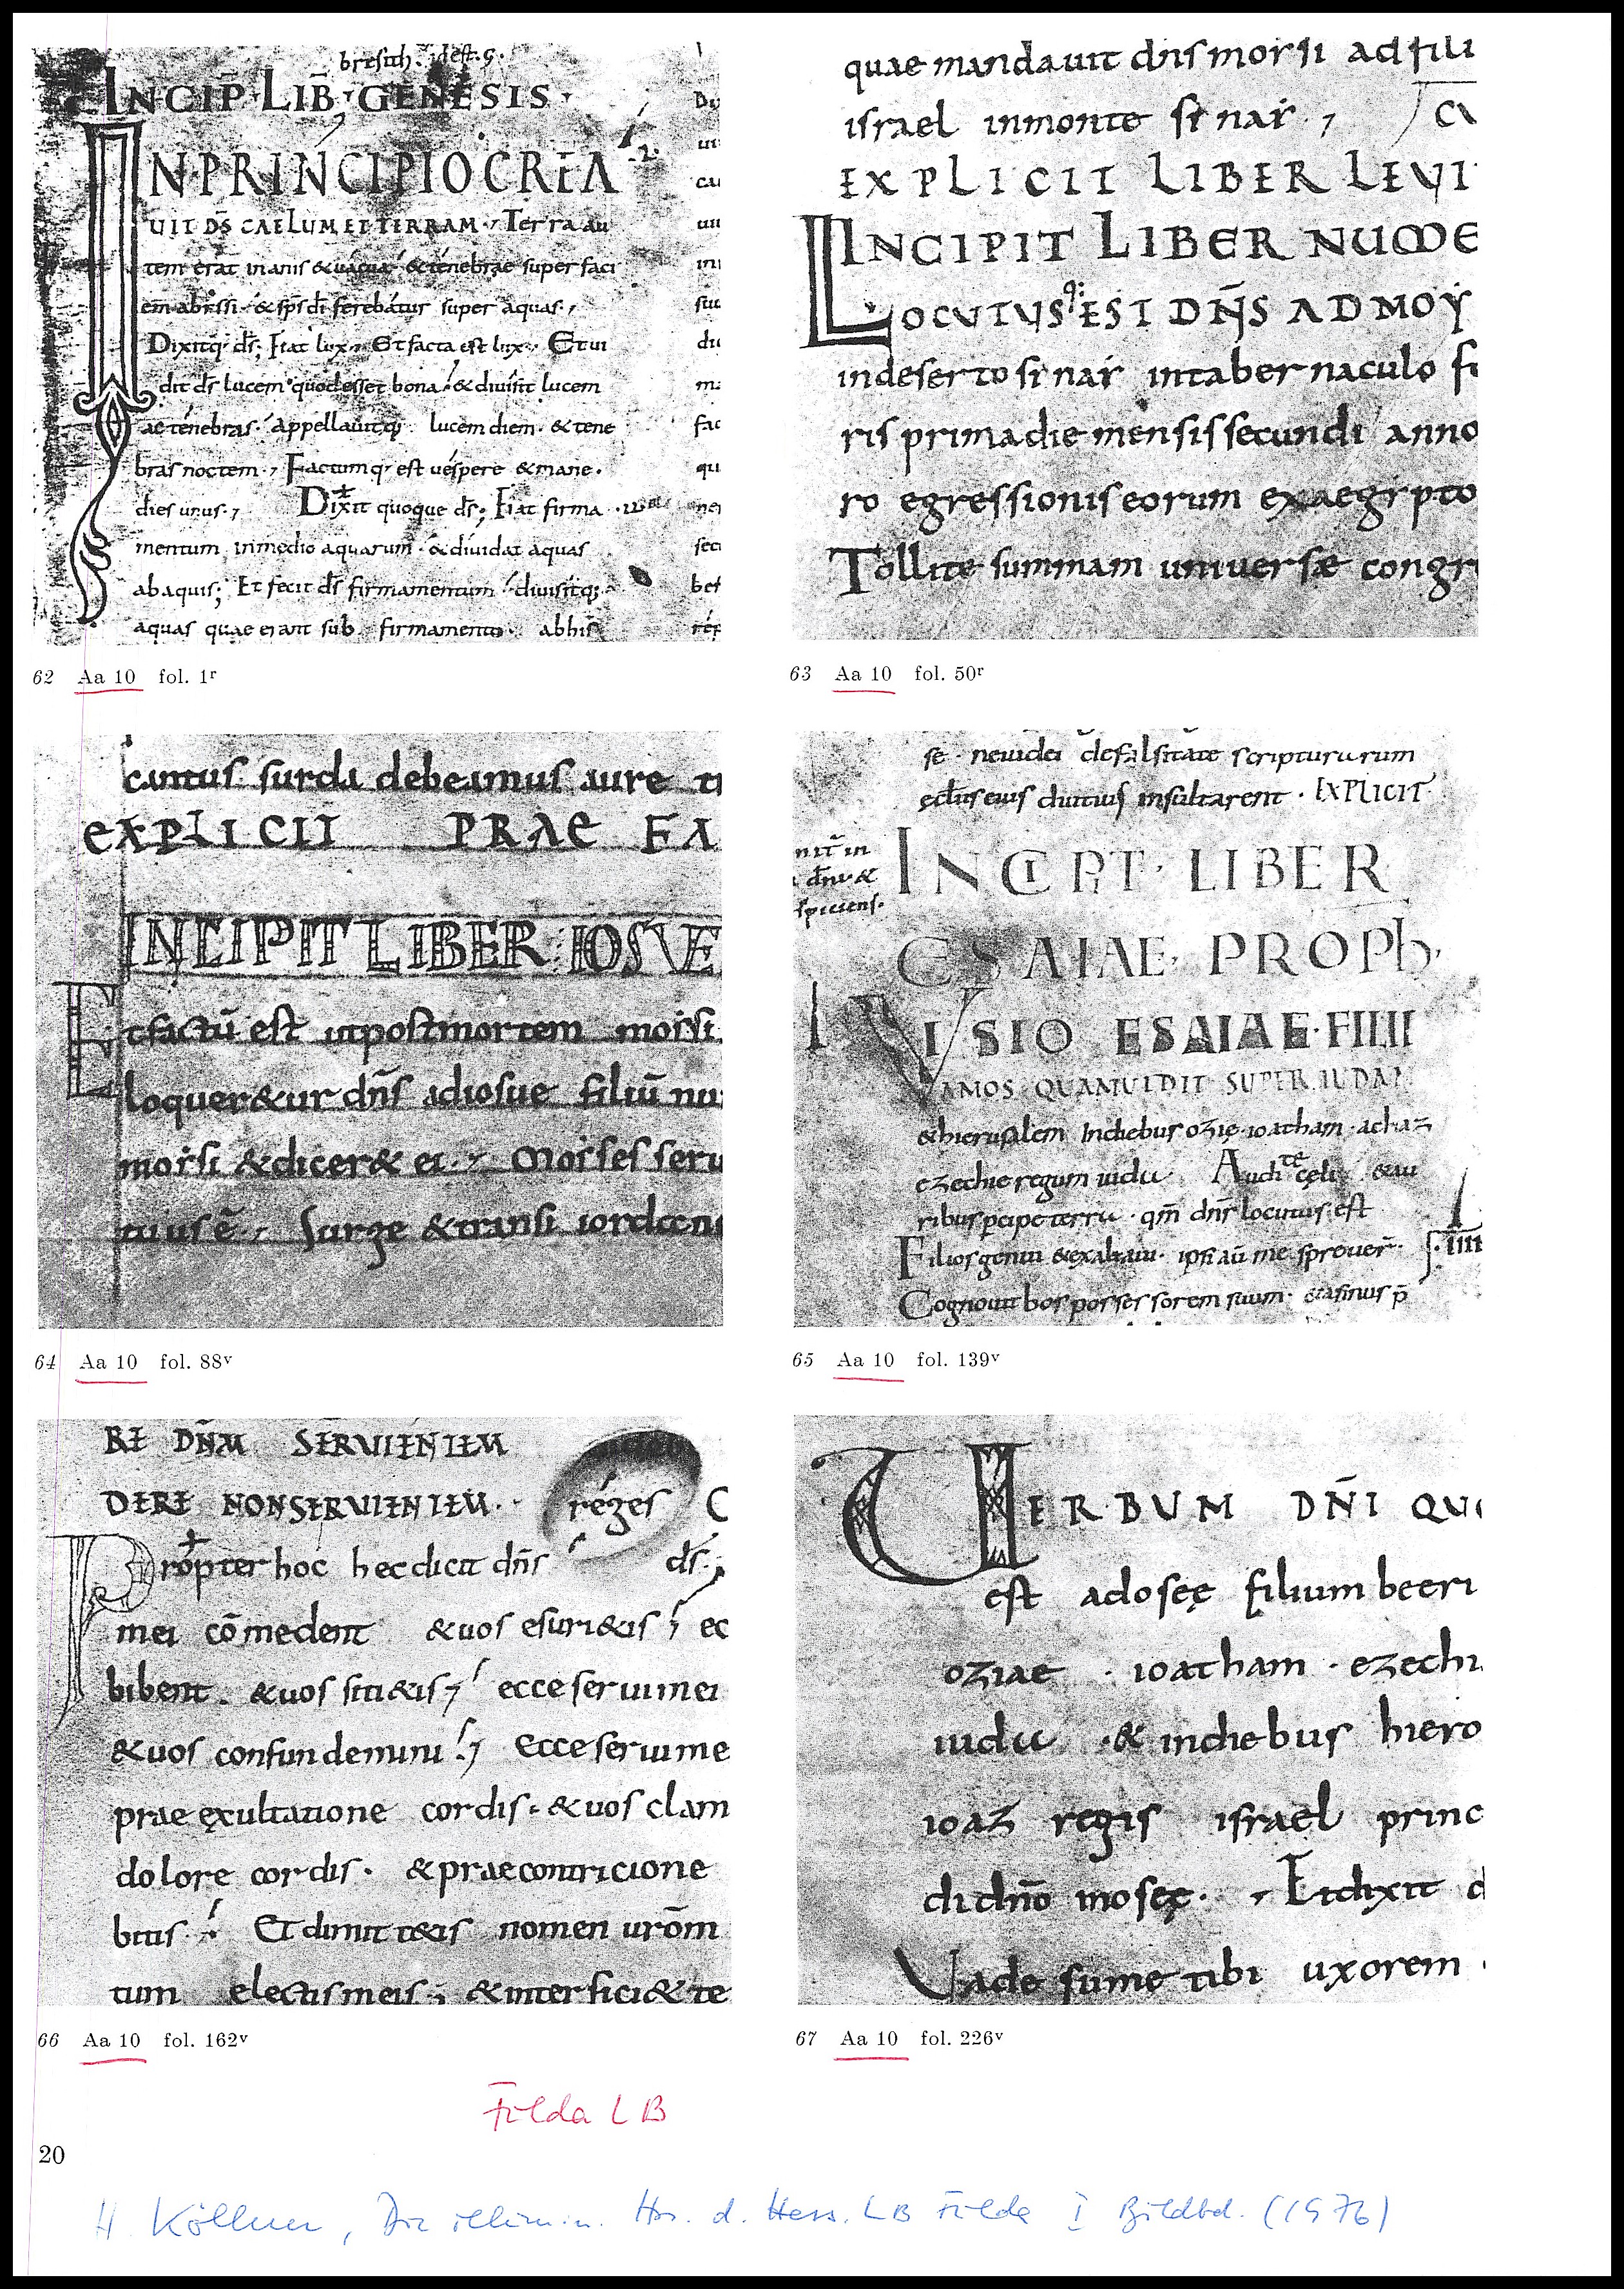 bresith. idest. g.
INCIP̄ LIB̄ GENESIS
IN PRINCIPIO CREA
UIT DS̄ CAELUM ET TERRAM. Terra au
tem erat inanis & uacua & tenebrae super faci
em abissi. & sp̄s dī ferebatur super aquas.
Dixitq; ds̄; Fiat lux. Et facta est lux. Et ui
dit ds̄ lucem quod esset bona & diuisit lucem
ac tenebras. appellauitq; lucem diem. & tene
bras noctem. Factumq; est uespere & mane.
dies unus. Dixit quoque ds̄; Fiat firma
mentum in medio aquarum. & diuidat aquas
ab aquis; Et fecit ds̄ firmamentum diuisitq;
aquas quae erant sub firmamento. ab his
62 Aa 10 fol. 1r
quae mandauit dn̄s moysi ad fili
israel in monte sinai
EXPLICIT LIBER LEUI
INCIPIT LIBER NUME
LOCUTUSq; EST DN̄S AD MOY
in deserto sinai in tabernaculo f
ris prima die mensis secundi anno
ro egressionis eorum ex aegypto
Tollite summam uniuersae congr
63 Aa 10 fol. 50r
cantus surda debeamus aure
EXPLICIT PRAE FA
INCIPIT LIBER IOSUE
Et factū est ut post mortem moisi
loquer&ur dn̄s ad iosue filiū nu
moisi & dicer& ei. Moises seru
tuus ē. Surge & transi iordane
64 Aa 10 fol. 88v
se iudei de falsitate scripturarum
ecclīis eius diutius insultarent. EXPLICIT
INCIPIT LIBER
ESAIAE PROPH.
VISIO ESAIAE FILII
AMOS QUAM UIDIT SUPER IUDAM
& hierusalem In diebus ozię ioatham achaz
ezechie regum iuda Audite cęli & au
ribus p̄cipe terra. qm̄ dn̄s locutus est
Filios genui & exaltaui. ipsi aū me spreuer̄.
Cognouit bos possessorem suum. & asinus p̄
65 Aa 10 fol. 139v
RE DN̄M SERUIENTEM
DERE NON SERUIENTEM.
reges
Propter hoc hec dicit dn̄s ds̄
mei cōmedent & uos esuri&is ec
bibent. & uos siti&is ecce serui mei
& uos confundemini Ecce serui me
prae exultatione cordis. & uos clam
dolore cordis. & prae contricione
bitis Et dimitt&is nomen urōm
tum electis meis & interfici& te
66 Aa 10 fol. 162v
UERBUM DN̄I QUO
est ad oseę filium beeri
oziae ioatham ezechi
iuda & in diebus hiero
ioaz regis israel princ
di dn̄o in oseę. Et dixit d
Uade sume tibi uxorem
67 Aa 10 fol. 226v
Fulda LB
20
H. Köllner, Die illumin. Hss. d. Hess. LB Fulda I Bildbd. (1976)